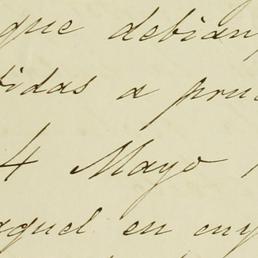 que debian
bidas a pru
4 Mayo
aquel en cuy